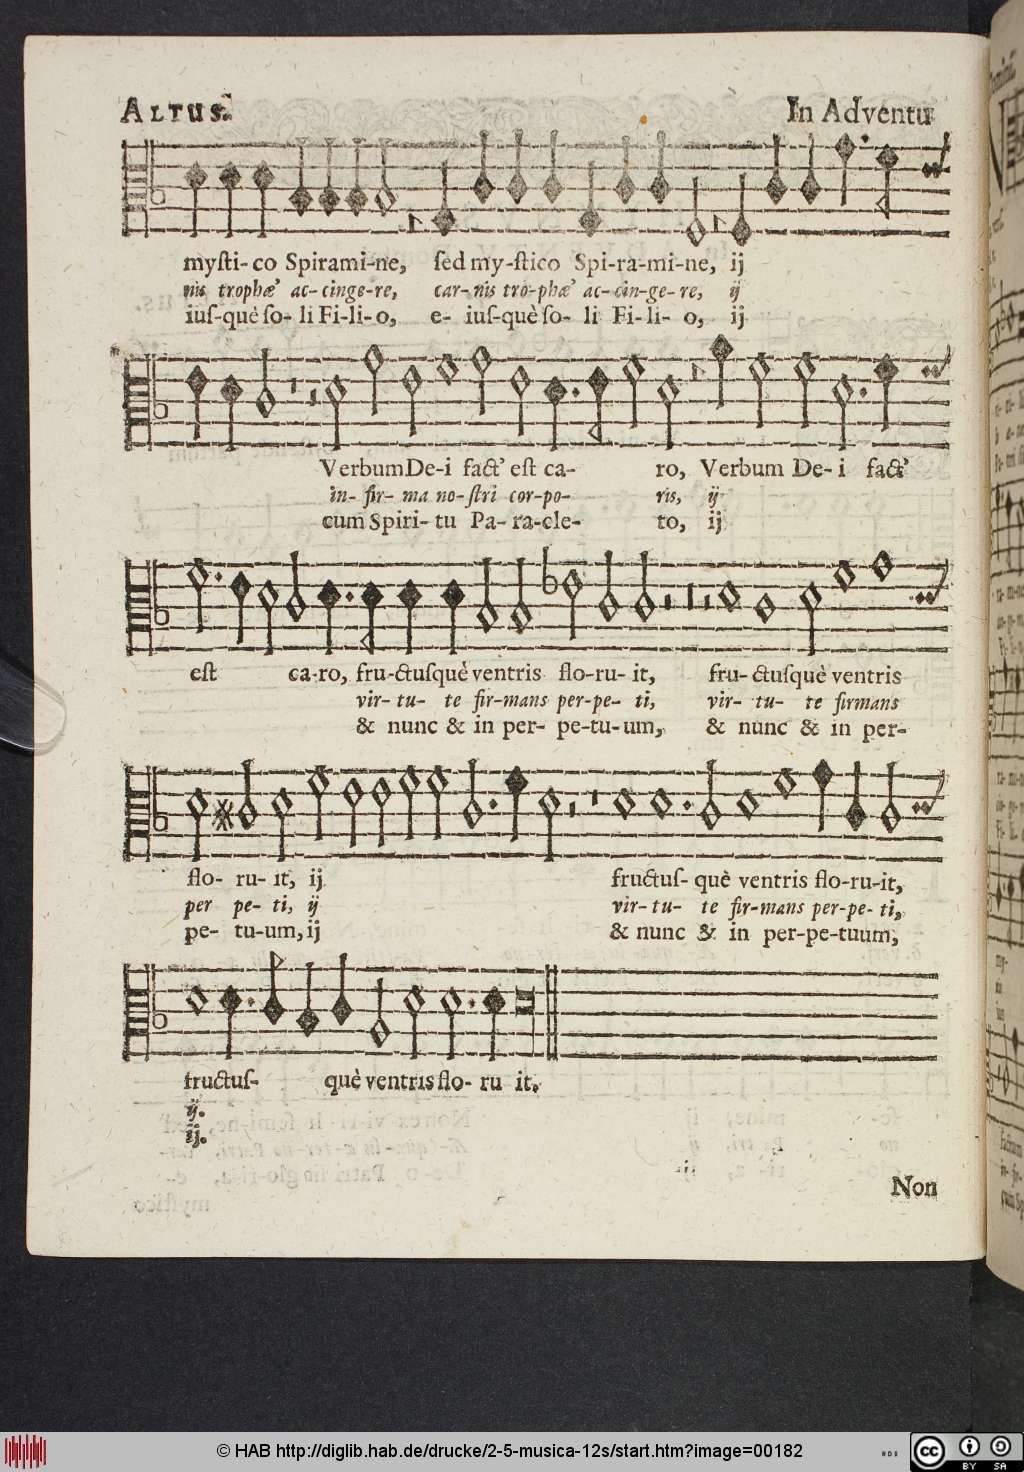 ALTUS. In Adventu
myſti-co Spirami-ne, ſed my-ſtico Spi-ra-mi-ne, ij
nis trophæ' ac-cinge-re, car-nis tro-phæ' ac-cin-ge-re, ij
iuſ-què ſo-li Fi-li-o, e-iuſ-què ſo-li Fi-li-o, ij
Verbum De-i fact' est ca-ro, Verbum De-i fact'
in-fir-ma no-ſtri cor-po-ris, ij
cum Spiri-tu Pa-ra-cle-to, ij
est ca-ro, fru-ctuſquè ventris flo-ru-it, fru-ctuſquè ventris
vir-tu-te firmans per-pe-ti, vir-tu-te firmans
& nunc & in per-pe-tu-um, & nunc & in per-
flo-ru-it, ij fructuſ-què ventris flo-ru-it,
per pe-ti, ij vir-tu-te fir-mans per-pe-ti,
pe-tu-um, ij & nunc & in per-pe-tuum,
fructuſ-què ventris flo-ru it.
ij.
ij.
Non
© HAB http://diglib.hab.de/drucke/2-5-musica-12s/start.htm?image=00182
cc BY SA